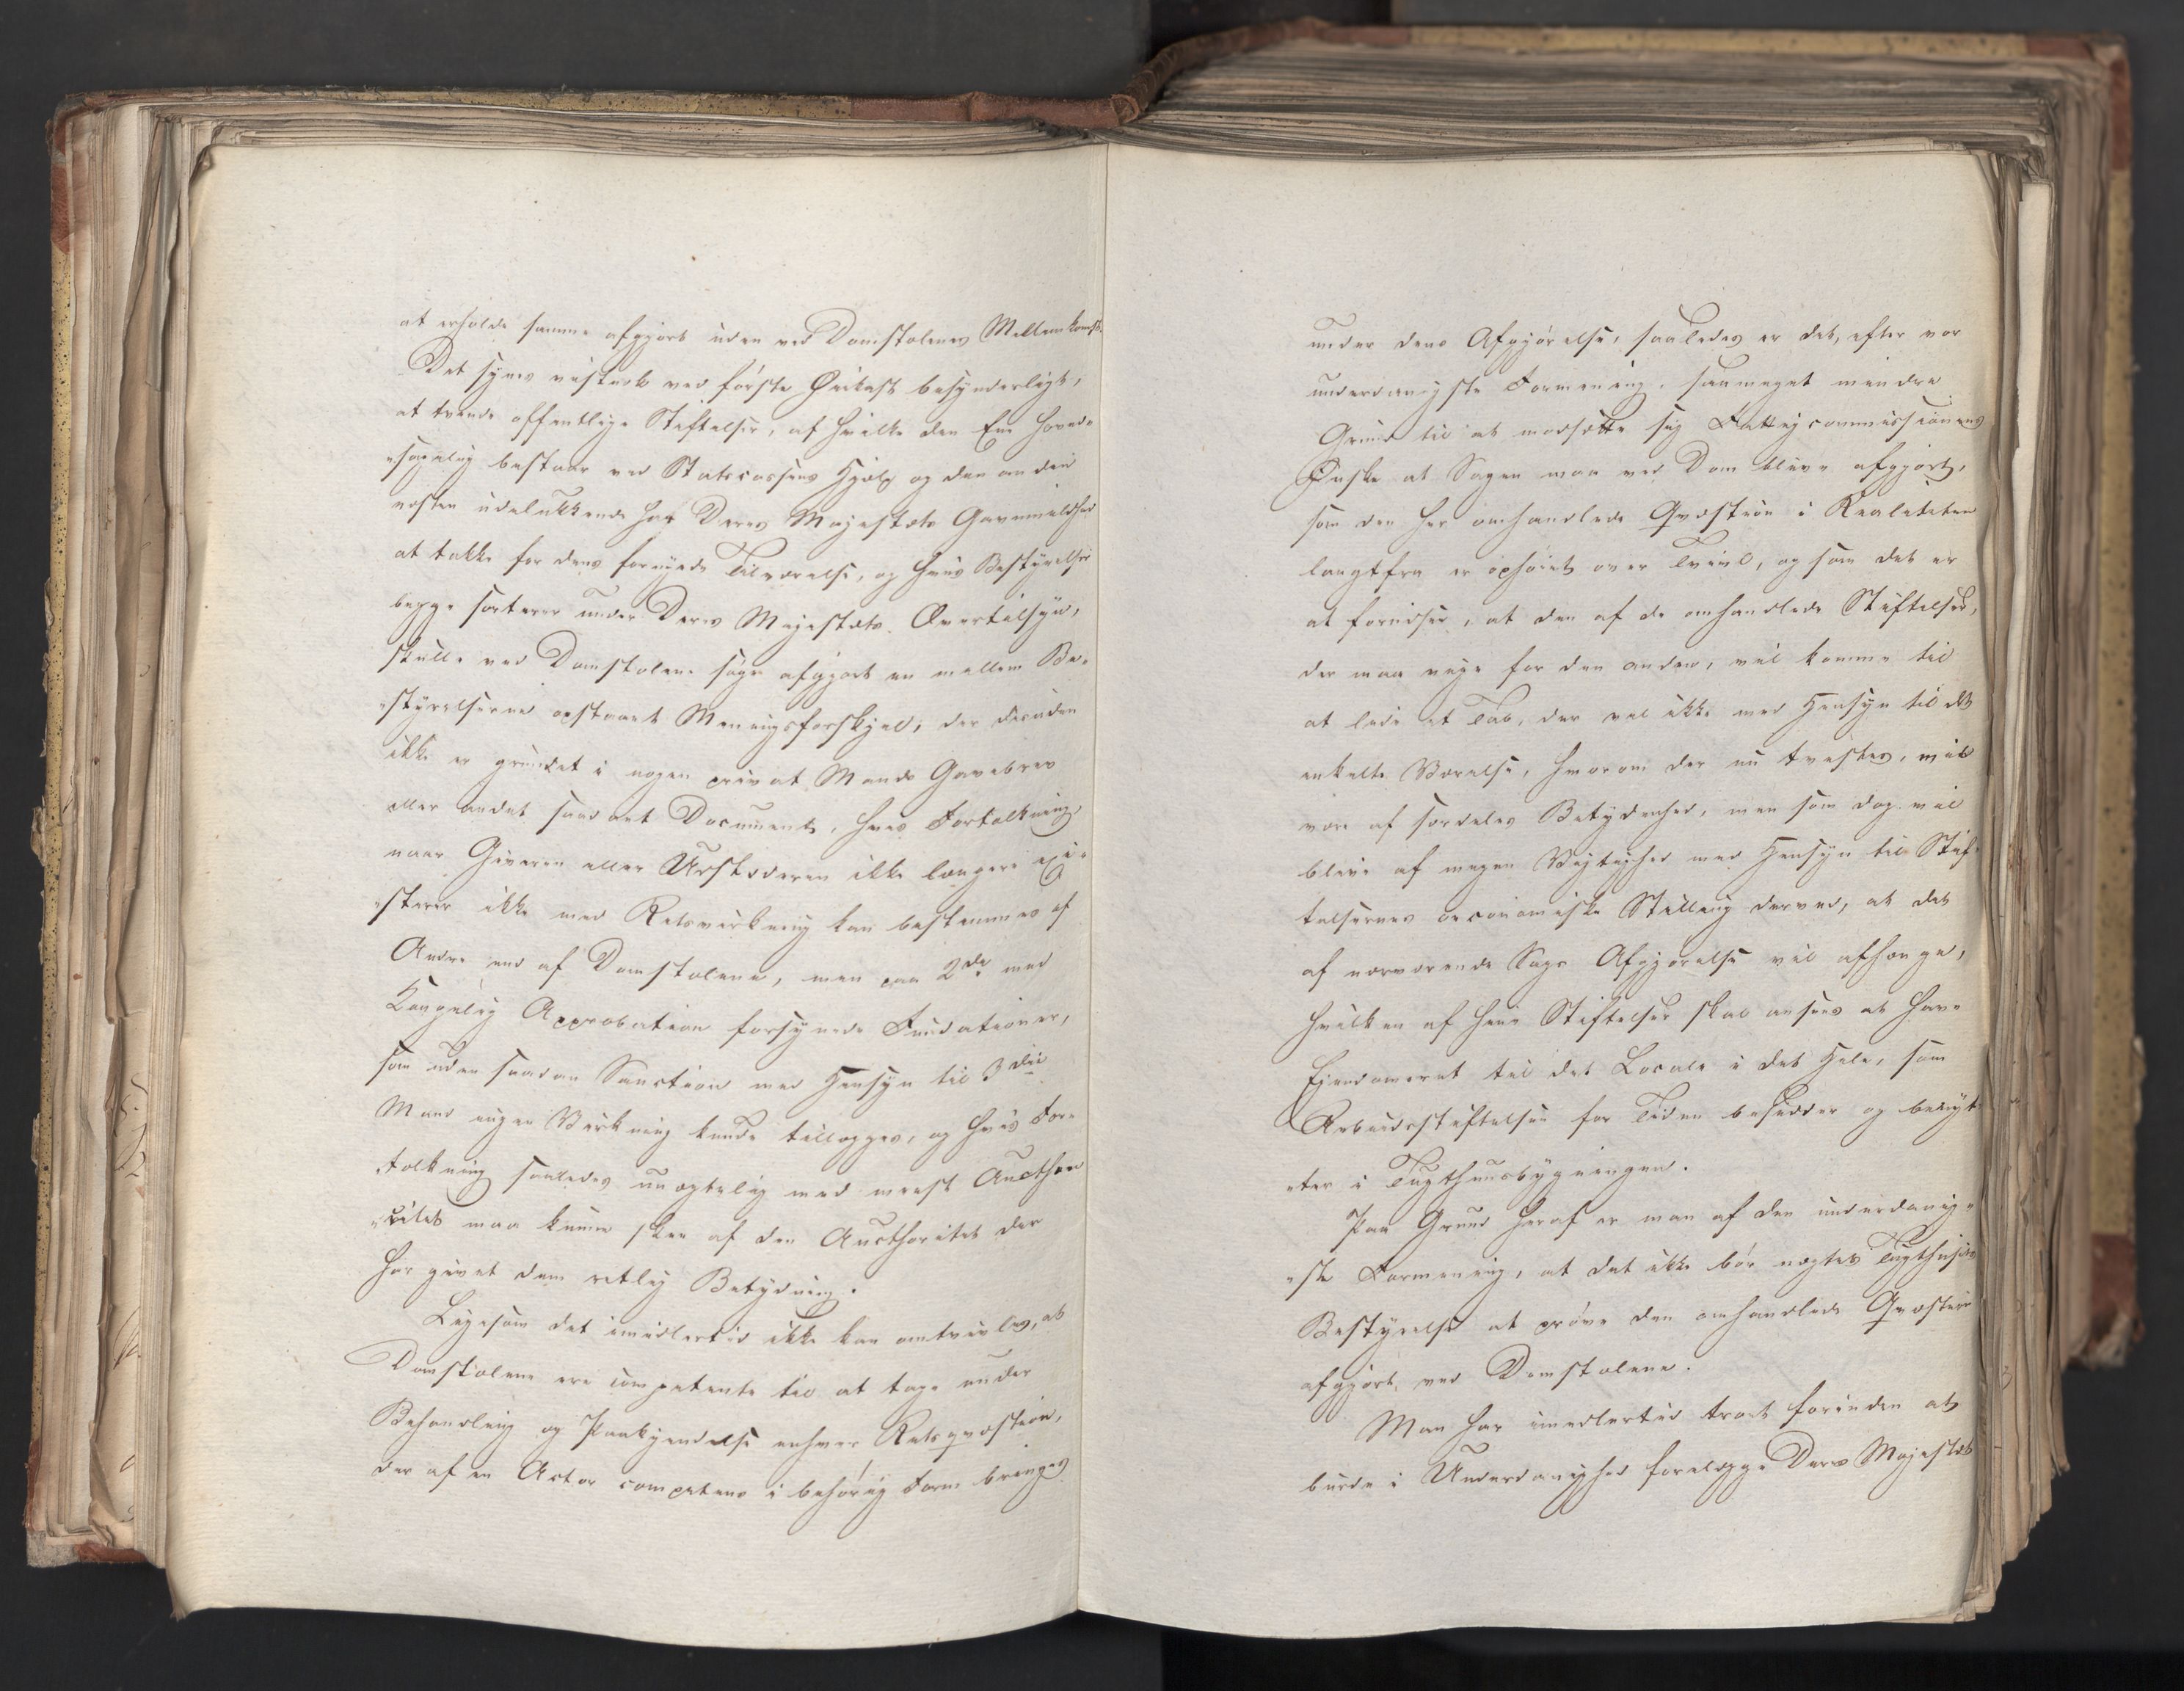 at erholde samme afgjort uden ved Domstolenes Mellemkomst.
Det synes vistnok ved første Øiekast besynderligt,
at tvende offentlige Stiftelser, af hvilke den Ene hoved-
"sagelig bestaar ved Statscassens Hjælp og den anden
næsten udelukkende har Deres Majestæts Gavemildhed
at takke for dens fornyede Tilværelse, og hvis Bestyrelser
begge sorterer under Deres Majestæts Overtilsyn,
skulle ved Domstolene søge afgjort en mellem Be-
"styrelserne opstaaet Meningsforskjel, der desuden
ikke er grundet i nogen privat Mands Gavebrev
eller andet saadant Document, hvis Fortolkning,
naar Giveren eller Udstederen ikke længere exi-
"sterer ikke med Retsvirkning kan bestemmes af
Andre end af Domstolene, men paa 2de med
Kongelig Approbation forsynede Fundationer,
som uden saadan Sanction med Hensyn til 3die
Mand ingen Virkning kunde tillægges, og hvis For-
tolkning saaledes unægtelig med meest Aucthor
"itet maa kunne skee af den Aucthoritet der
har givet dem retlig Betydning.
Ligesom det imidlertid ikke kan omtvivles, at
Domstolene ere competente til at tage under
Behandling og Paakjendelse enhver Retsqvæstion,
der af en Actor competens i behørig Form bringes
under dens Afgjørelse, saaledes er det, efter vor
underdanigste Formening, saameget mindre
Grund til at modsætte sig Fattigcommissionens
Ønske at Sagen maa ved Dom blive afgjort,
som den her omhandlede Qvæstion i Realiteten
langtfra er ophøiet over Tvivl, og som det er
at forudsee, at den af de omhandlede Stiftelser,
der maa vige for den anden, vil komme til
at lide et Tab, der vel ikke med Hensyn til det
enkelte Værelse, hvorom der nu tvistes, vil
være af særdeles Betydenhed, men som dog vil
blive af megen Vigtighed med Hensyn til Stif-
telsernes oeconomiske Stilling derved, at det
af nærværende Sags Afgjørelse vil afhænge,
hvilken af hine Stiftelser skal ansees at have
Eiendomsret til det Locale i det Hele, som
Arbeidsstiftelsen for Tiden besidder og benyt
"ter i Tugthuusbygningen.
Paa Grund heraf er man af den underdanig-
"ste Formening, at det ikke bør nægtes Tugthusets
Bestyrelse at prøve den omhandlede Qvæstion
afgjort ved Domstolene.
Man har imidlertid troet forinden at
burde i Underdanighed forelægge Deres Majestæt